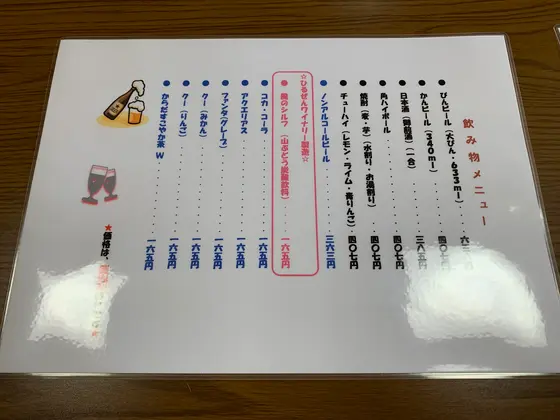 飲み物メニュー
● びんビール（大びん・633ml）・・・六
● かんビール（340ml）・・・・・四〇七円
● 日本酒（御前酒）（一合）・・・・・三八五円
● 角ハイボール・・・・・・・・・・四〇七円
● 焼酎（麦・芋）（水割り・お湯割り）・・四〇七円
● チューハイ（レモン・ライム・青りんご）・四〇七円
● ノンアルコールビール・・・・・・・三六三円
☆ひるぜんワイナリー製造☆
● 風のシルフ（山ぶどう炭酸飲料）・・・一六五円
● コカ・コーラ・・・・・・・・・・一六五円
● アクエリアス・・・・・・・・・・一六五円
● ファンタ（グレープ）・・・・・・・一六五円
● クー（みかん）・・・・・・・・・一六五円
● クー（りんご）・・・・・・・・・一六五円
● からだすこやか茶 W・・・・・・・一六五円
★価格は、